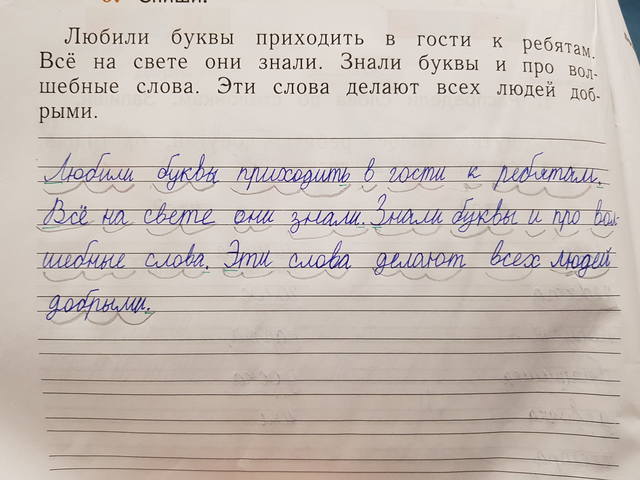 Спиши.
Любили буквы приходить в гости к ребятам.
Всё на свете они знали. Знали буквы и про вол-
шебные слова. Эти слова делают всех людей доб-
рыми.
Любили буквы приходить в гости к ребятам.
Всё на свете они знали. Знали буквы и про вол-
шебные слова. Эти слова делают всех людей
добрыми.